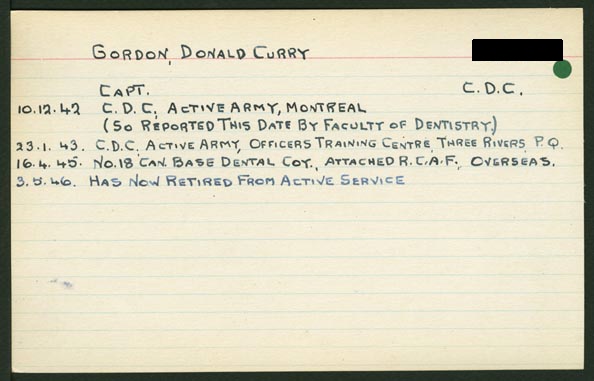 GORDON, DONALD CURRY
CAPT. C.D.C.
10.12.42 C.D.C, ACTIVE ARMY, MONTREAL
(SO REPORTED THIS DATE BY FACULTY OF DENTISTRY)
23.1.43. C.D.C. ACTIVE ARMY, OFFICERS TRAINING CENTRE, THREE RIVERS, P.Q.
16.4.45. NO.18 CAN. BASE DENTAL COY., ATTACHED R.C.A.F., OVERSEAS.
3.5.46. HAS NOW RETIRED FROM ACTIVE SERVICE